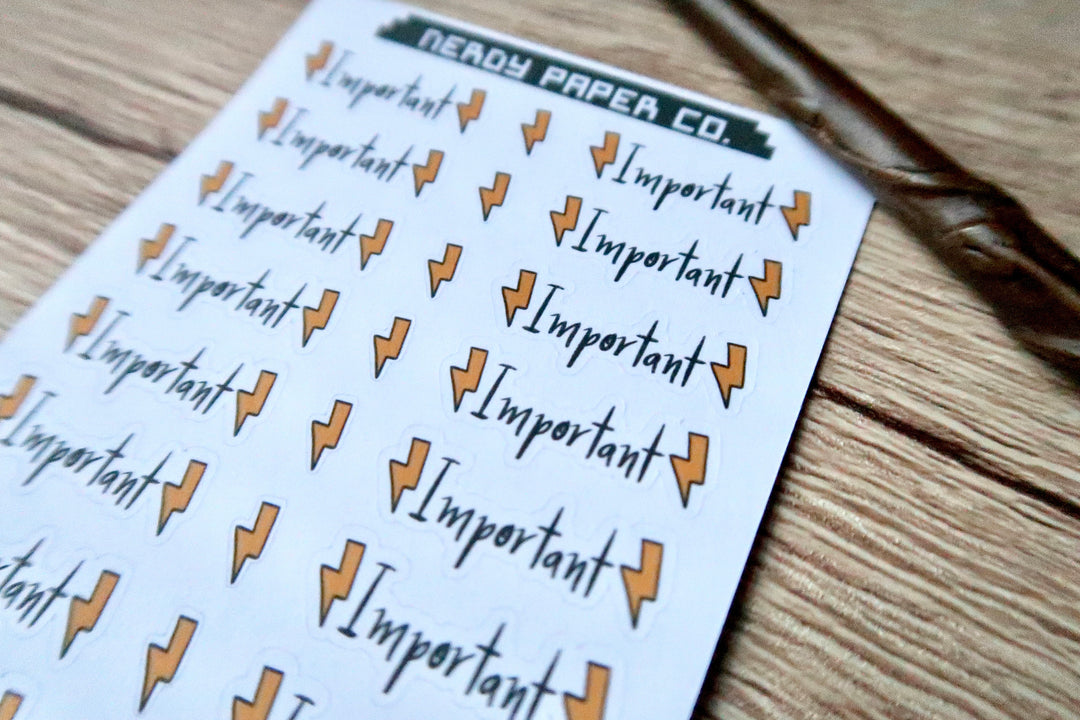 NERDY PAPER CO.
Important Important
Important Important
Important Important
Important Important
Important Important
Important Important
tant I